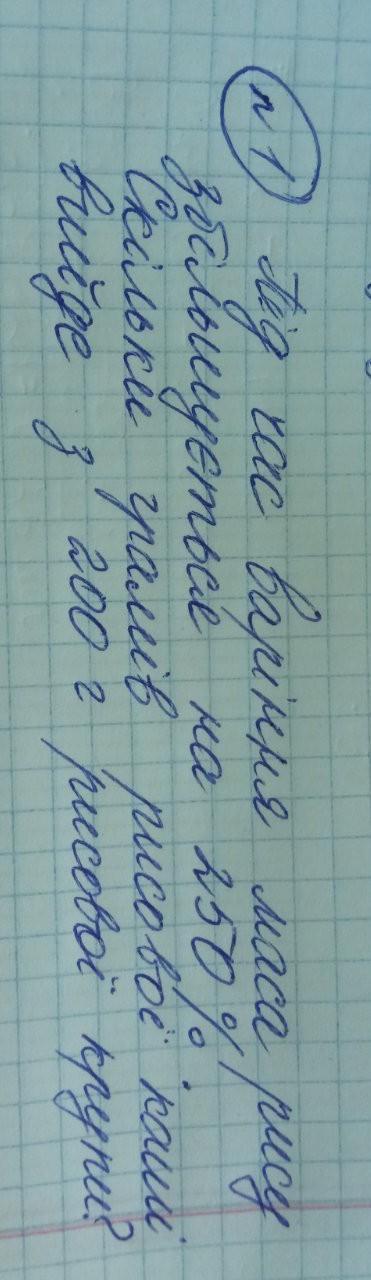 №1 Під час варіння маса рису
збільшується на 250%.
Скільки грамів рисової каші
вийде з 200 г рисової крупи?